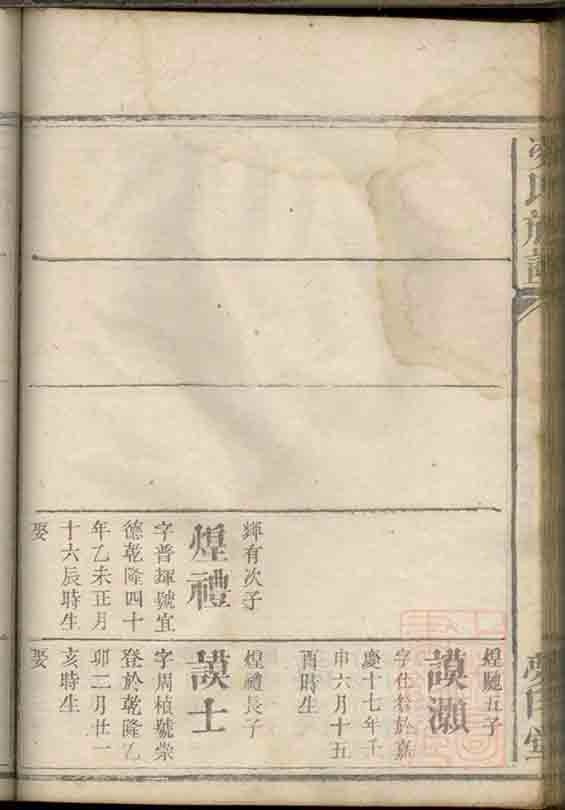 氏族譜
輝有次子
煌禮
字普輝號宜
德乾隆四十
年乙未正月
十六辰時生
娶
煌颺五子
謨灝
字仕 於嘉
慶十七年壬
申六月十五
酉時生
煌禮長子
謨士
字周楨號榮
登於乾隆乙
卯二月廿一
亥時生
娶